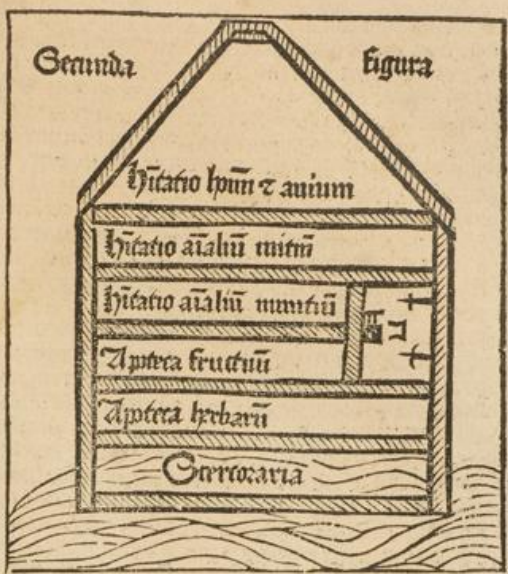 Secunda figura
Hītatio hoīm ⁊ avium
Hītatio aīaliū mitiū
Hītatio aīaliū inmitiū
Apoteca fructuū
Apoteca herbarū
Stercoraria